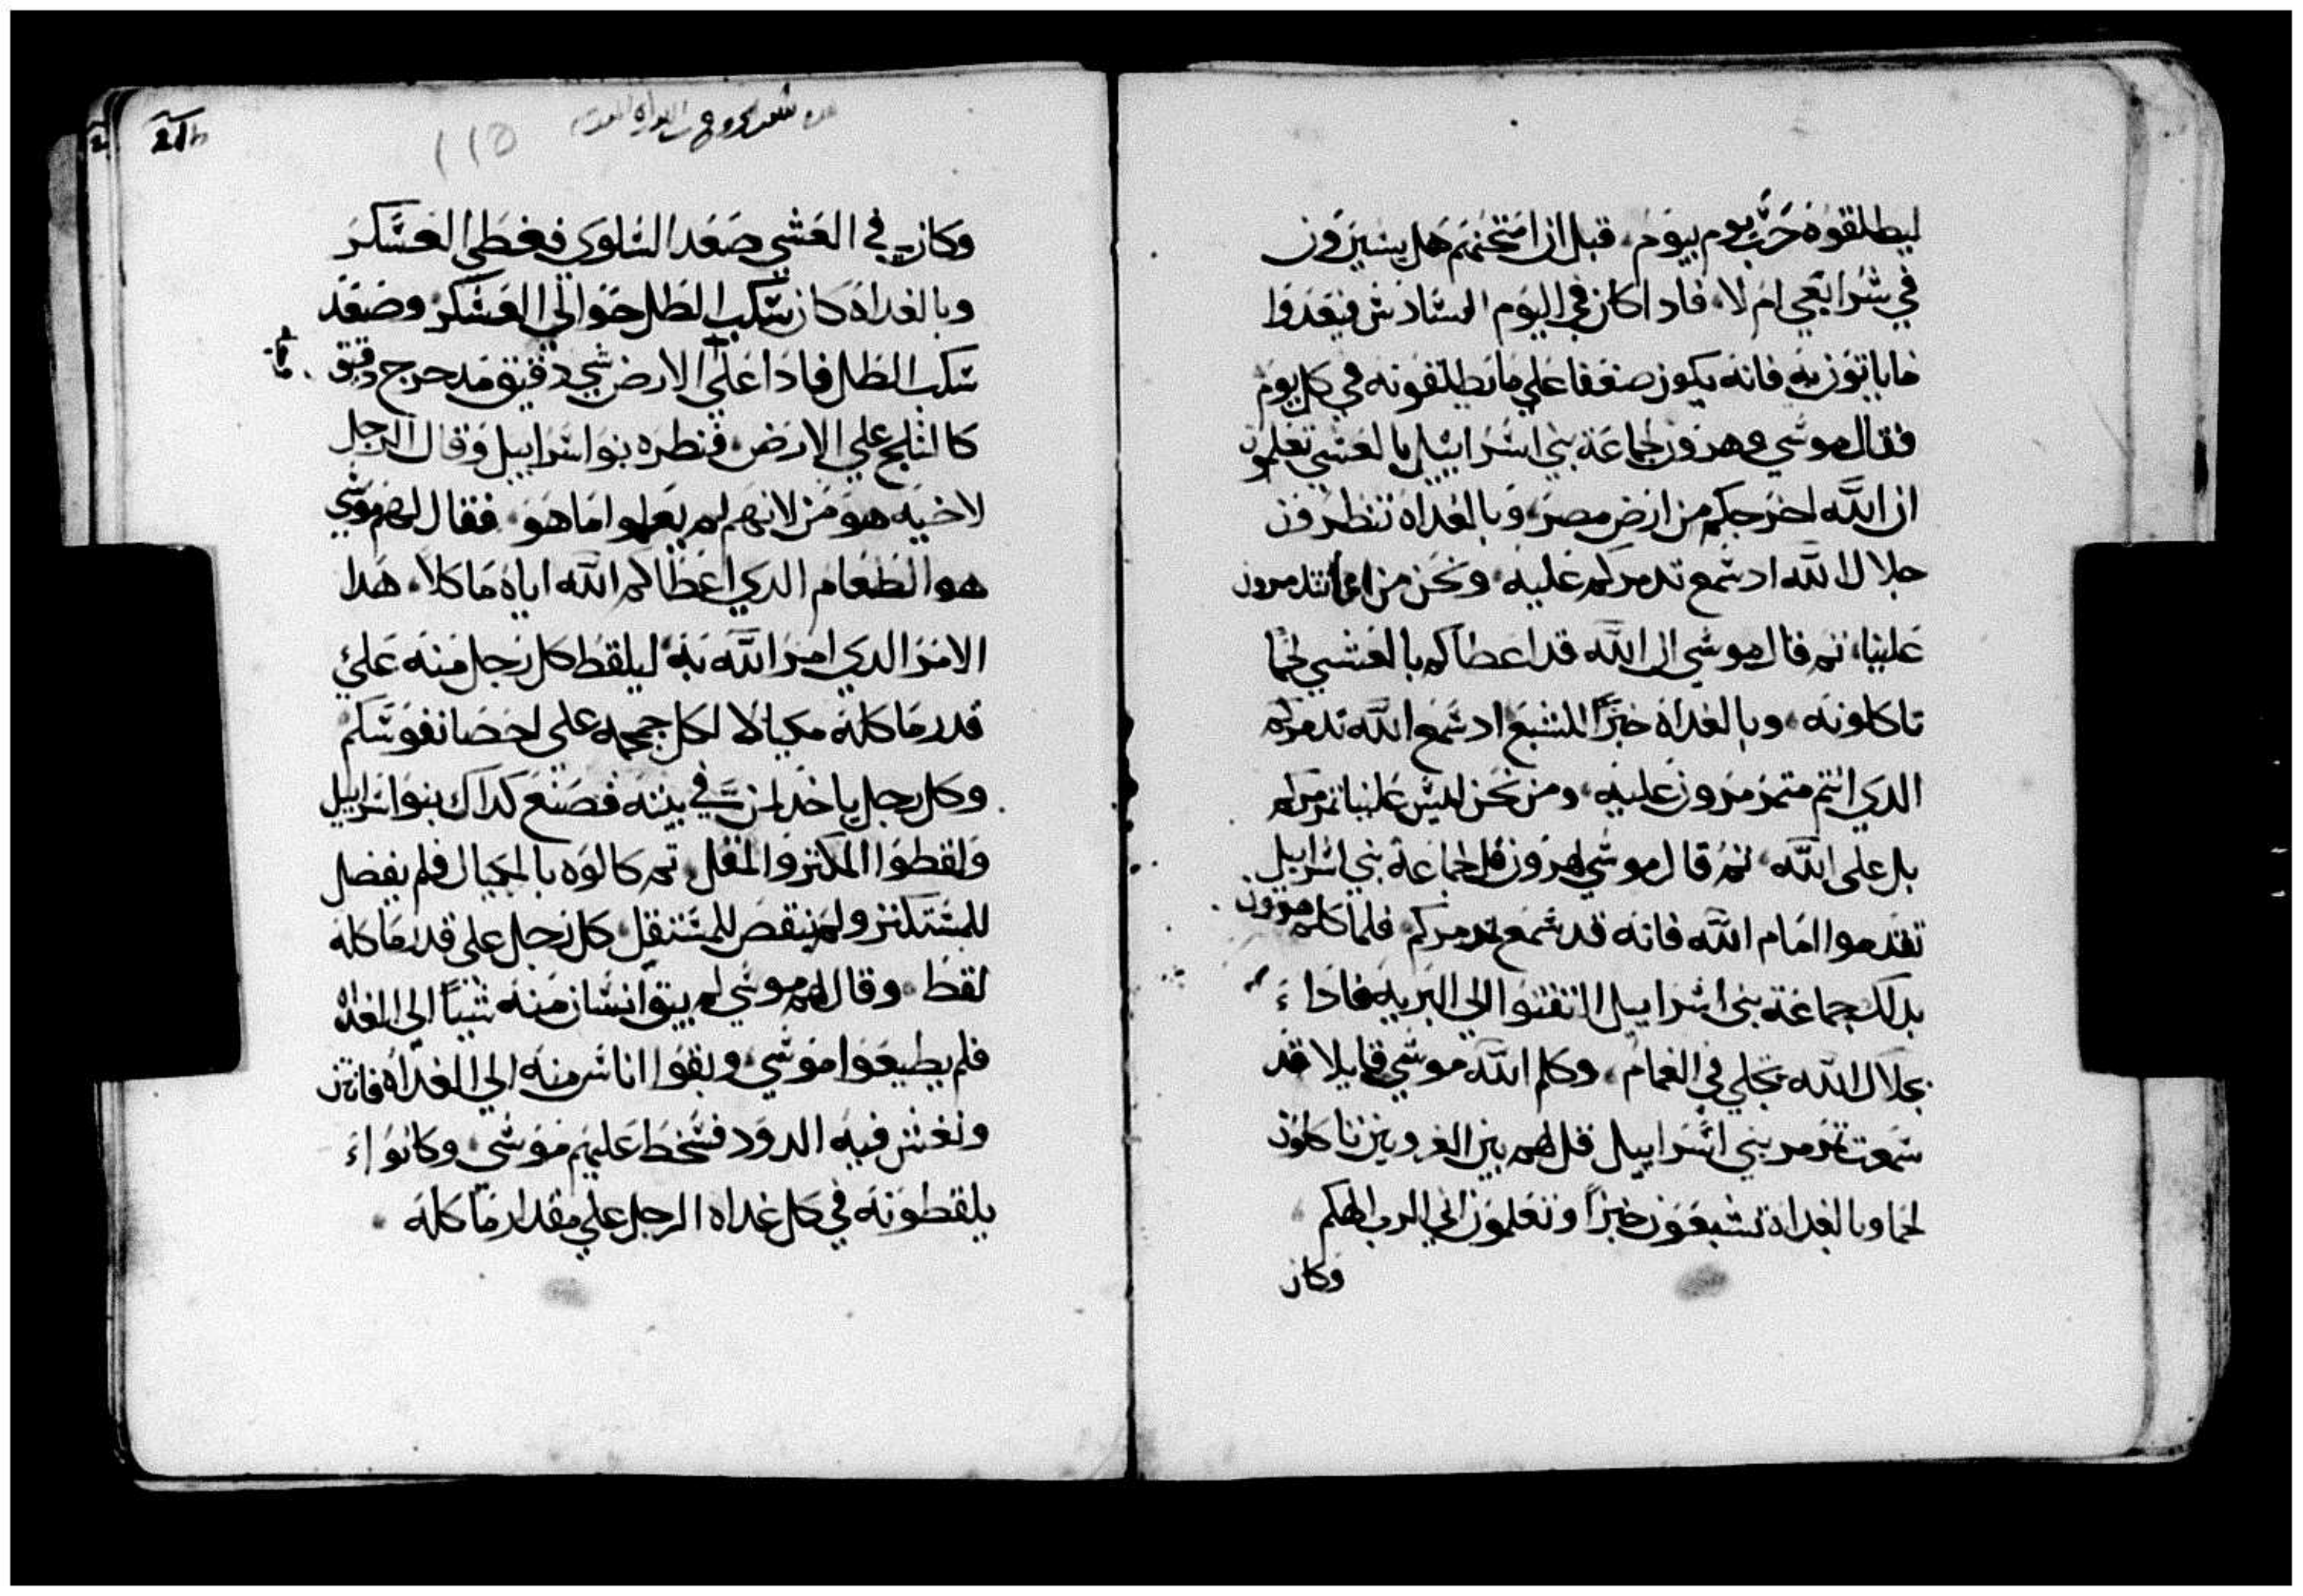 ليطلقوه حزب يوم بيوم. قبل ان امتحنهم هل يسيرون
في شرايعي ام لا. فاداكان في اليوم السادس فيعدوا
ماياتون به فانه يكون ضعفا علي مايطلقونه في كل يوم
فقال موسي وهرون لجماعة بني اسراييل بالعشي تعلمون
ان الله اخرجكم من ارض مصر، وبالغداه تنظرون
جلال الله ادسمع تدمركم عليه. ونحن من انتدمرون
علينا، ثم قال موسي ان الله قد اعطاكم بالعشي لحما
تاكلونه. وبالغداه خبزا للشبع ادسمع الله تدمركم
الدي انتم متمرمرون عليه. ومن نحن ليس علينا تمرمركم
بل علي الله. ثم قال موسي لهرون قل لجماعة بني اسراييل
تقدموا امام الله فانه قد سمع تدمركم فلما كلم هرون
بدلك جماعة بني اسراييل التفتوا الي البريه فادا
بجلال الله تجلي في الغمام. وكلم الله موسي قايلا قد
سمعت تمرمر بني اسراييل قل لهم بين الغروبين تاكلون
لحما وبالغداه تشبعون خبزا وتعلمون اني الرب الهكم
وكان
115
وكان في العشي صعد السلوي فغطي العسكر
وبالغداه كان سكب الطل حوالي العسكر وصعد
سكب الطل فادا علي الارض شي دقيق مدحرج دقيق
كالثلج علي الارض. فنظره بنو اسراييل وقال الرجل
لاخيه هو من لانهم لم يعلموا ما هو. فقال لهم موسي
هو الطعام الدي اعطاكم الله اياه ماكلا. هدا
الامر الدي امر الله به ليلقط كل رجل منه علي
قدر ماكله مكيالا لكل جمجمه علي احصا نفوسكم
وكل رجل ياخد لمن في بيته فصنع كداك بنو اسراييل
ولقطوا المكتر والمقل ثم كالوه بالمكيال فلم يفضل
للمستكتر ولم ينقص للمستقل كل رجل علي قدر ماكله
لقط. وقال لهم موسي لم يبق انسان منه شيا الي الغداه
فلم يطيعوا موسي وبقوا اناس منه الي الغداه فانتن
ونغش فيه الدود فسخط عليهم موسي. وكانوا
يلقطونه في كل غداه الرجل علي مقدار ماكله.